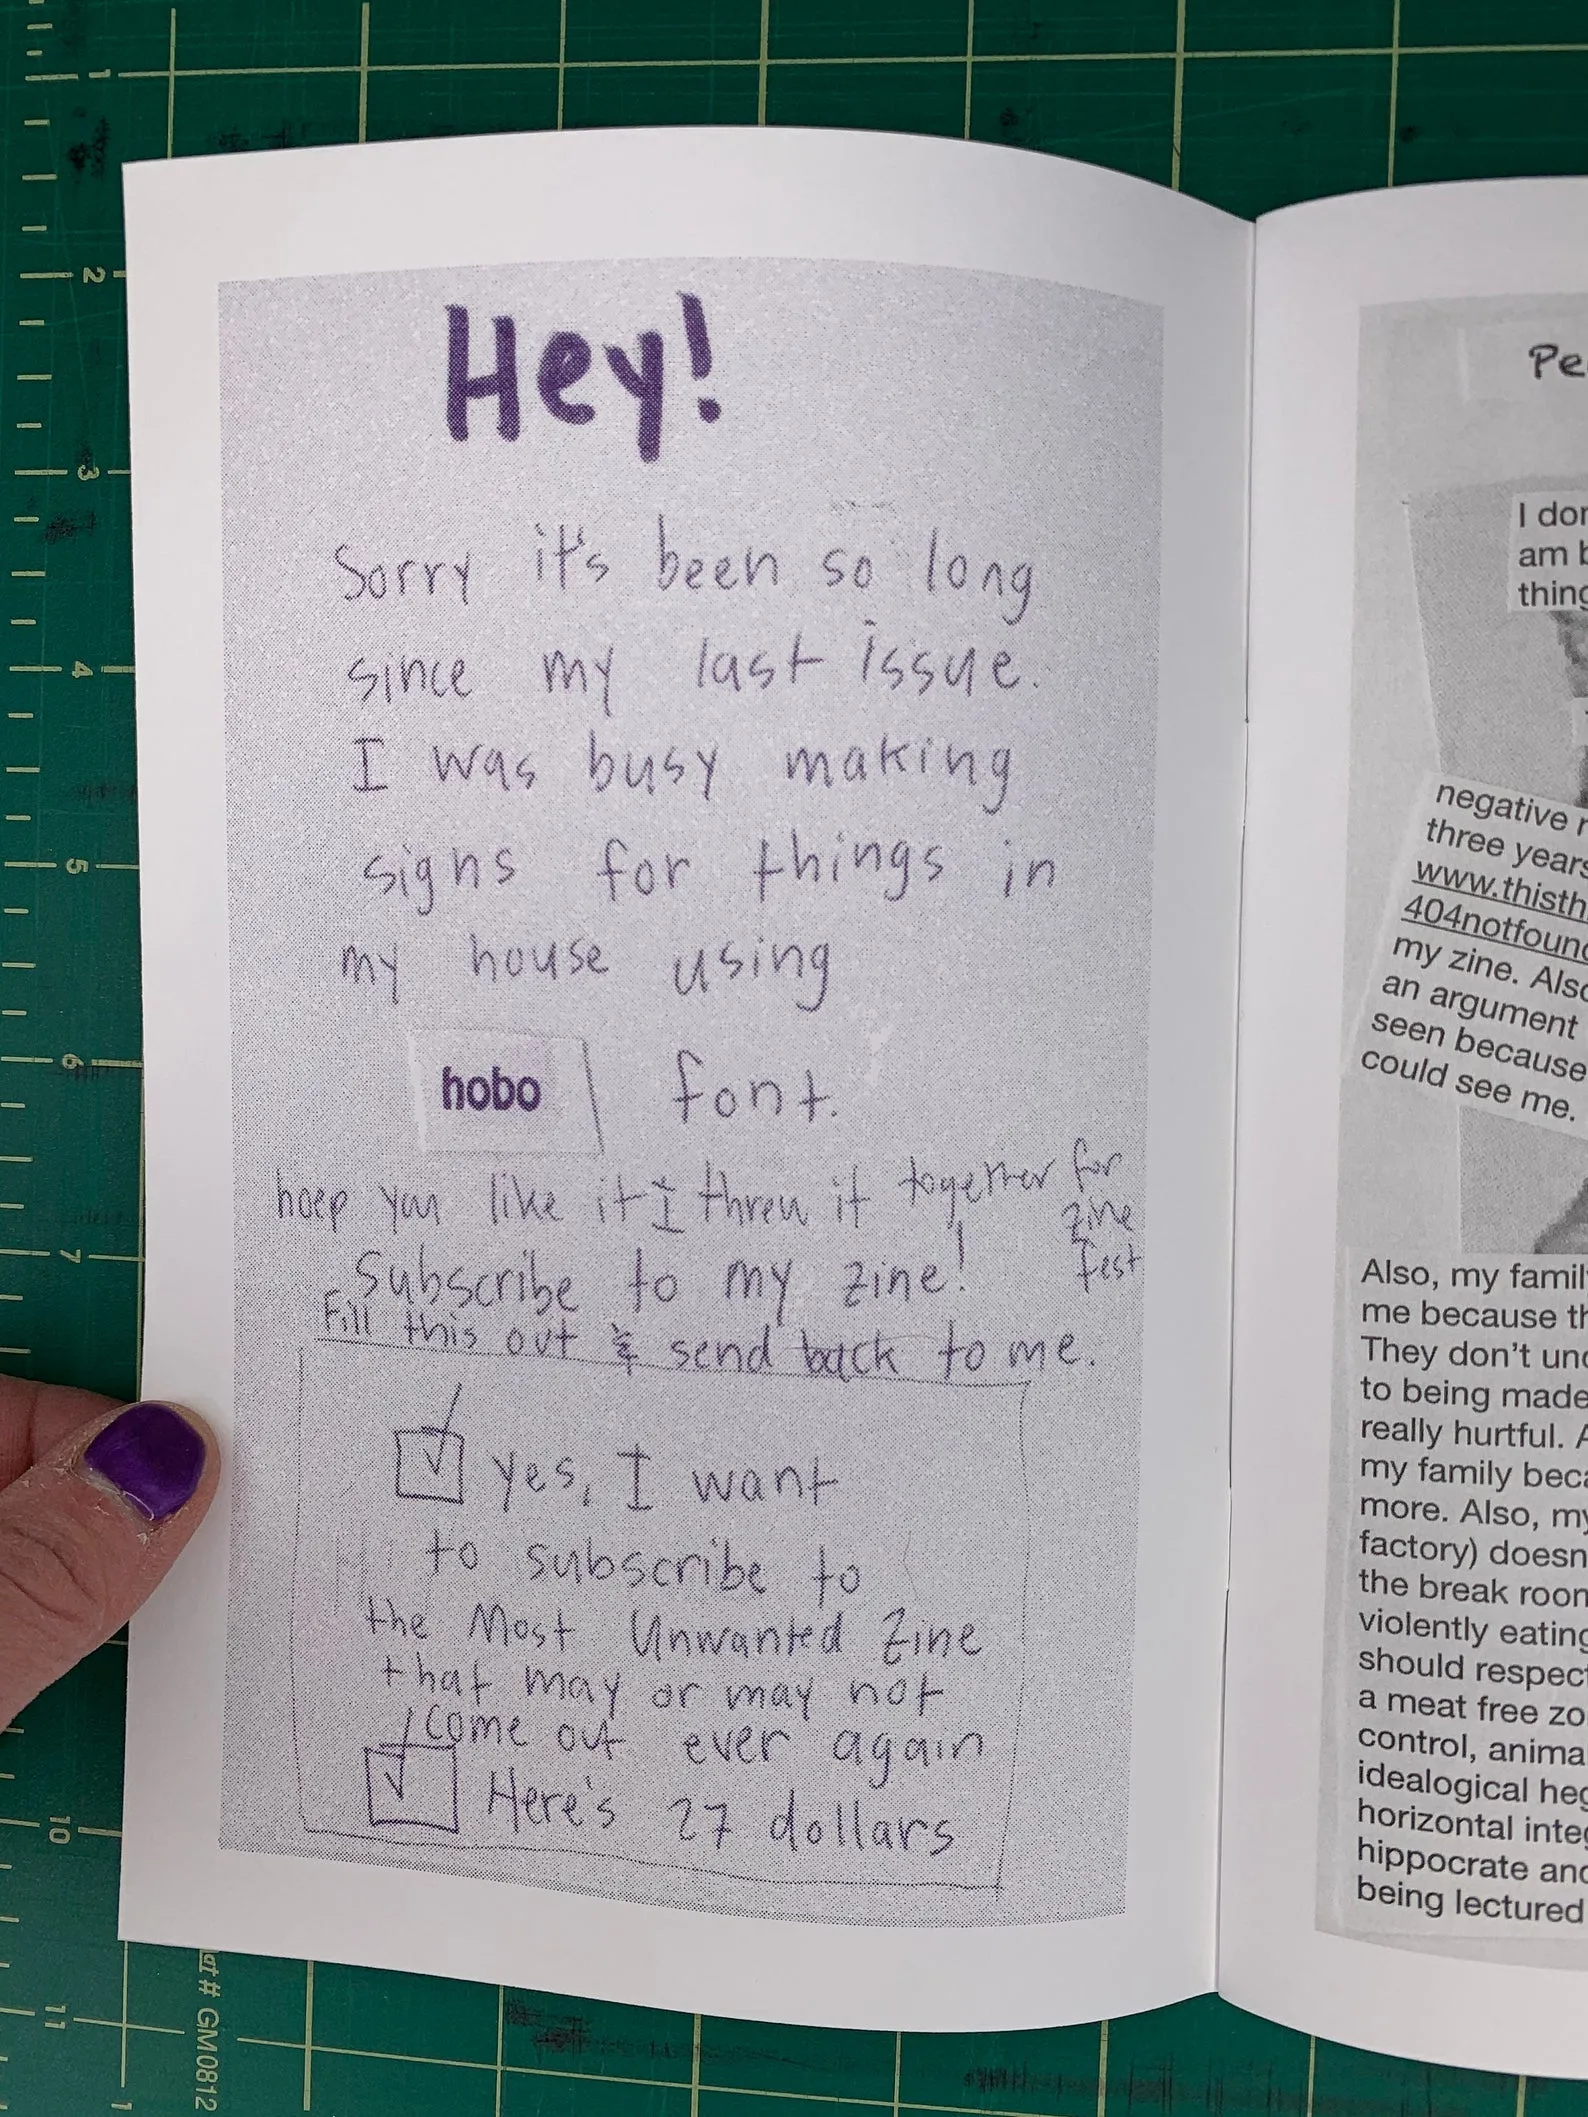 Hey!
Sorry it's been so long
since my last issue.
I was busy making
signs for things in
my house using
hobo font.
hoep you like it I threw it together for
zine
fest
Subscribe to my zine!
Fill this out & send back to me.
yes, I want
to subscribe to
the Most Unwanted Zine
that may or may not
come out ever again
Here's 27 dollars
Pe
I don
am b
thing
negative r
three years
www.thisth
404notfound
my zine. Also
an argument
seen because
could see me.
Also, my famil
me because th
They don't und
to being made
really hurtful. A
my family beca
more. Also, my
factory) doesn
the break room
violently eating
should respect
a meat free zo
control, anima
idealogical heg
horizontal integ
hippocrate and
being lectured
1
2
3
4
5
6
7
10
11
1
mat # GM0812